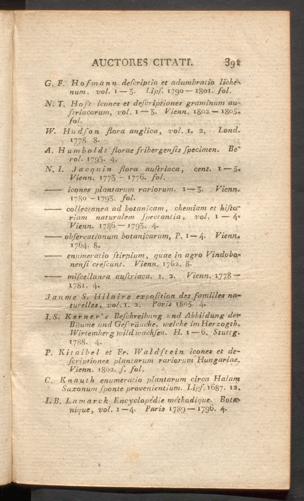 AUCTORES CITATI. 391
G. F. Hofmann descriptio et adumbratio liche-
num. vol. 1 — 3. Lips. 1790 — 1801. fol.
N. T. Host icones et descriptiones graminum au-
striacorum, vol. 1 — 3. Vienn. 1802 — 1805.
fol.
W. Hudson flora anglica, vol. 1. 2. Lond.
1778. 8.
A. Humboldt florae fribergensis specimen. Be-
rol. 1793. 4.
N. I. Jacquin flora austriaca, cent. 1 — 5.
Vienn. 1773 — 1776. fol.
—— icones plantarum rariorum. 1 — 3. Vienn.
1780 — 1793. fol.
—— collectanea ad botanicam, chemiam et histo-
riam naturalem spectantia, vol. 1 — 4.
Vienn. 1786 — 1795. 4.
—— observationum botanicarum, P. 1 — 4. Vienn.
1764. 8.
—— enumeratio stirpium, quae in agro Vindobo-
nensi crescunt. Vienn. 1762. 8.
—— miscellanea austriaca. 1. 2. Vienn. 1778 —
1781. 4.
Jaume S. Hilaire exposition des familles na-
turelles, vol. 1. 2. Paris 1805. 4.
I. S. Kerner's Beschreibung und Abbildung der
Bäume und Gesträuche, welche im Herzogth.
Wirtemberg wild wachsen. H. 1 — 6. Stuttg.
1788. 4.
P. Kitaibel et Fr. Waldstein icones et de-
scriptiones plantarum rariorum Hungariae.
Vienn. 1802. s. fol.
C. Knauth enumeratio plantarum circa Halam
Saxonum sponte provenientium. Lips. 1687. 12.
I. B. Lamarck Encyclopédie méthodique. Bota-
nique, vol. 1 — 4. Paris 1789 — 1796. 4.